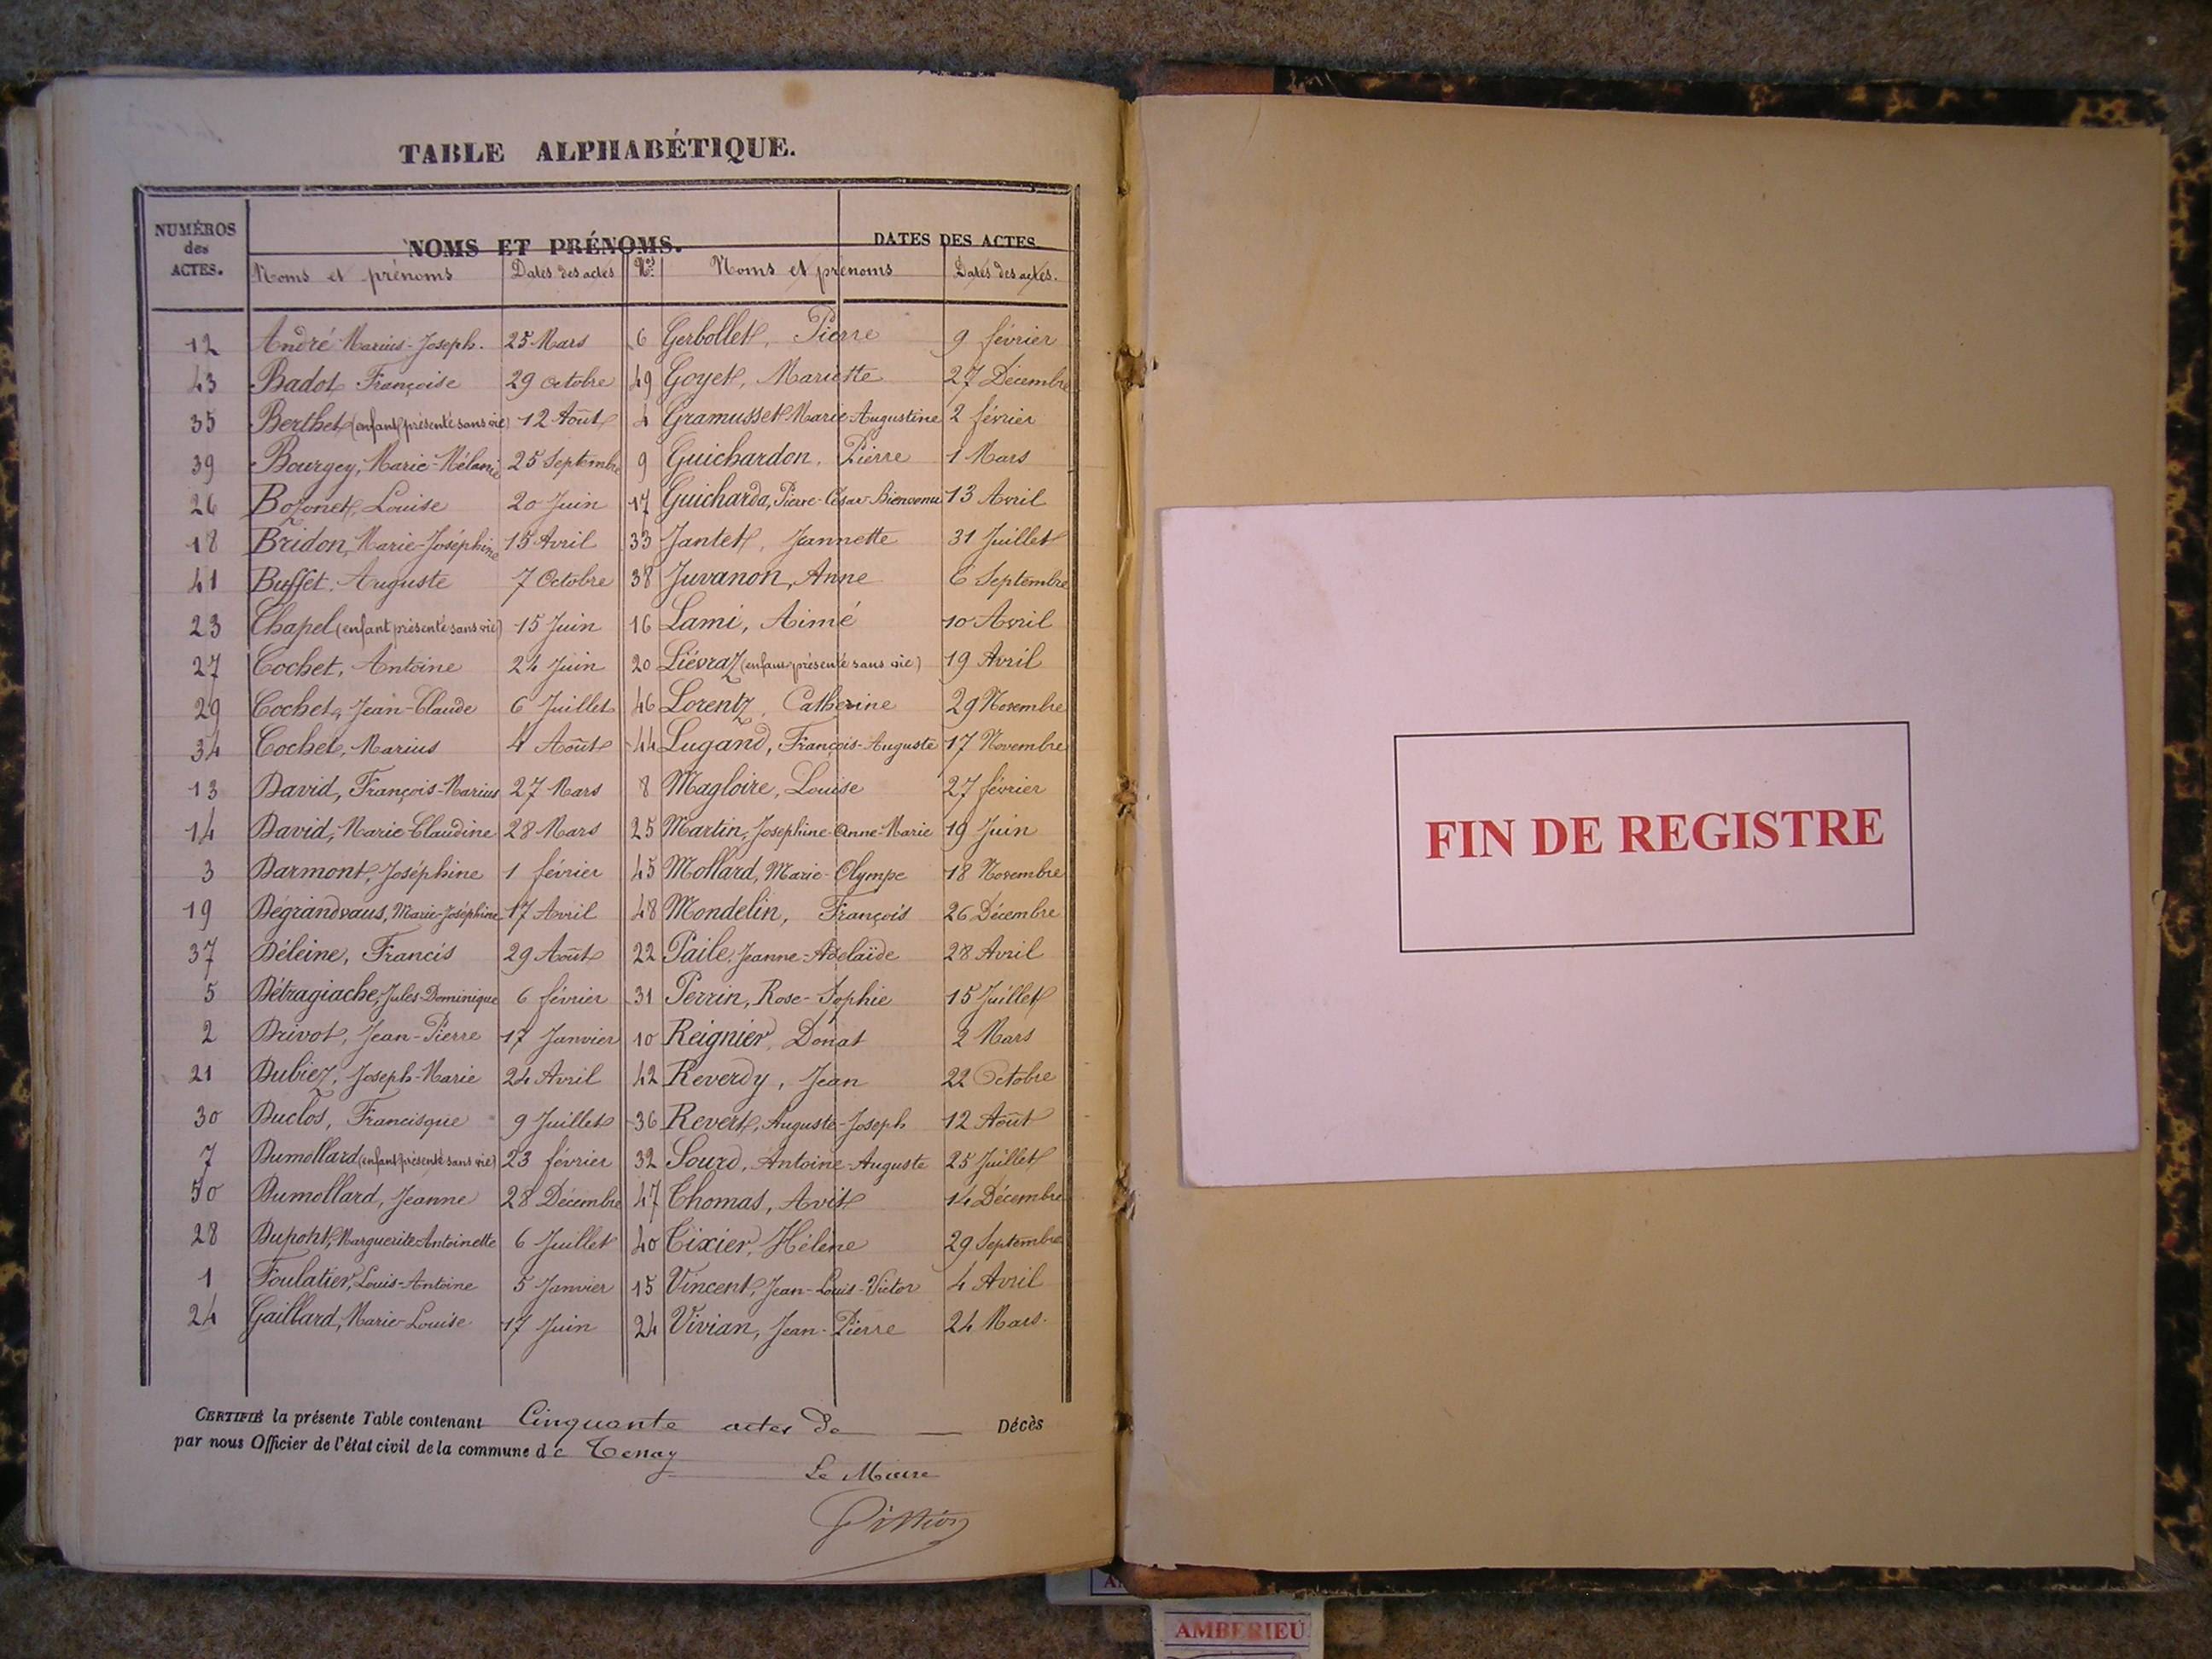 TABLE ALPHABÉTIQUE.
NUMÉROS des ACTES. NOMS ET PRÉNOMS. DATES DES ACTES
Noms et prénoms Dates des actes Nos Noms et prénoms Dates des actes.
12 André Marius-Joseph. 25 Mars 6 Gerbollet, Pierre 9 février
43 Badot Françoise 29 Octobre 49 Goyet, Mariette 27 Décembre
35 Berthet (enfant présenté sans vie) 12 Août 4 Gramusset Marie-Augustine 2 février
39 Bourgey, Marie-Mélanie 25 Septembre 9 Guichardon, Pierre 1 Mars
26 Bozonet, Louise 20 Juin 17 Guicharda, Pierre-César-Bienvenu 13 Avril
18 Bridon, Marie-Joséphine 15 Avril 33 Jantet, Jeannette 31 Juillet
41 Buffet, Auguste 7 Octobre 38 Juvanon, Anne 6 Septembre
23 Chapel (enfant présenté sans vie) 15 Juin 16 Lami, Aimé 10 Avril
27 Cochet, Antoine 24 Juin 20 Liévraz (enfant présenté sans vie) 19 Avril
29 Cochet, Jean-Claude 6 Juillet 46 Lorentz, Catherine 29 Novembre
34 Cochet, Marius 4 Août 44 Lugand, François-Auguste 17 Novembre
13 David, François-Marius 27 Mars 8 Magloire, Louise 27 février
14 David, Marie-Claudine 28 Mars 25 Martin, Josephine-Anne-Marie 19 Juin
3 Darmont, Joséphine 1 février 45 Mollard, Marie-Olympe 18 Novembre
19 Dégrandvaus, Marie-Joséphine 17 Avril 48 Mondelin, François 26 Décembre
37 Déleine, Francis 29 Août 22 Paile, Jeanne-Adelaïde 28 Avril
5 Détragiache, Jules-Dominique 6 février 31 Perrin, Rose-Sophie 15 Juillet
2 Drivot, Jean-Pierre 17 Janvier 10 Reignier, Donat 2 Mars
21 Dubiez, Joseph-Marie 24 Avril 42 Reverdy, Jean 22 Octobre
30 Duclos, Francisque 9 Juillet 36 Revert, Auguste-Joseph 12 Août
7 Dumollard (enfant présenté sans vie) 23 février 32 Sourd, Antoine-Auguste 25 Juillet
50 Dumollard, Jeanne 28 Décembre 47 Thomas, Avit 14 Décembre
28 Dupont, Marguerite-Antoinette 6 Juillet 40 Tixier, Hélène 29 Septembre
1 Foulatier, Louis-Antoine 5 Janvier 15 Vincent, Jean-Louis-Victor 4 Avril
24 Gaillard, Marie-Louise 17 Juin 24 Vivian, Jean-Pierre 24 Mars.
CERTIFIÉ la présente Table contenant Cinquante actes de — Décès
par nous Officier de l'état civil de la commune de Tenay
Le Maire
FIN DE REGISTRE
AMBERIEU